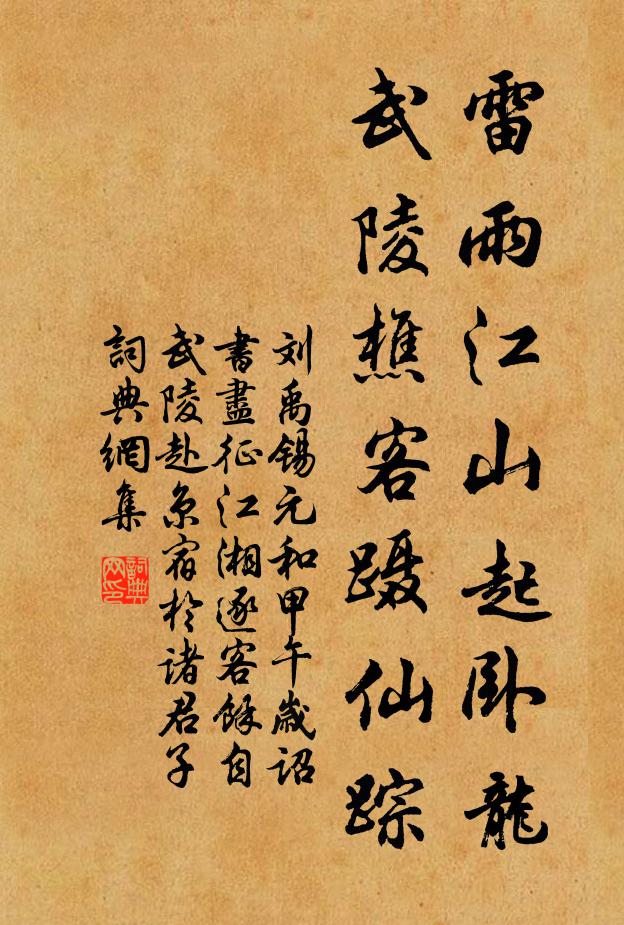 雷雨江山起卧龍
武陵樵客蹑仙踪
刘禹锡元和甲午歲詔
書盡征江湘逐客餘自
武陵赴京宿於诸君子
詞典網集
詞典
网印